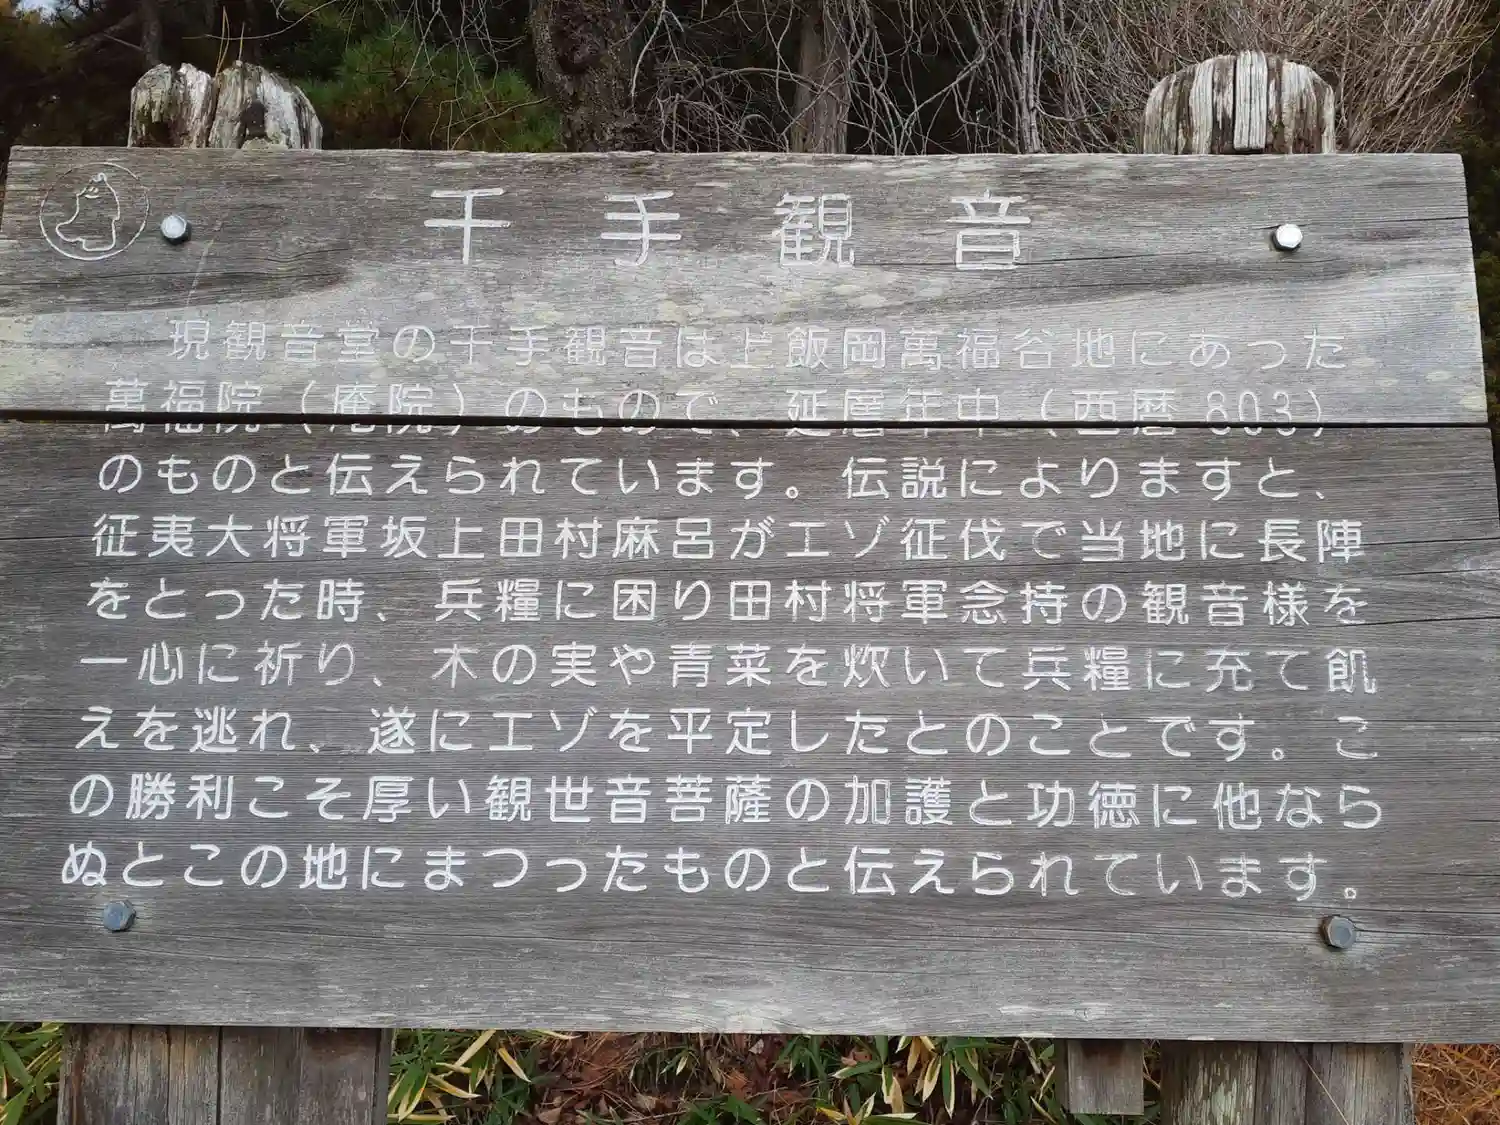 千手観音
現観音堂の千手観音は上飯岡萬福谷地にあった
萬福院（庵院）のもので、延暦年中（西暦803）
のものと伝えられています。伝説によりますと、
征夷大将軍坂上田村麻呂がエゾ征伐で当地に長陣
をとった時、兵糧に困り田村将軍念持の観音様を
一心に祈り、木の実や青菜を炊いて兵糧に充て飢
えを逃れ、遂にエゾを平定したとのことです。こ
の勝利こそ厚い観世音菩薩の加護と功徳に他なら
ぬとこの地にまつったものと伝えられています。